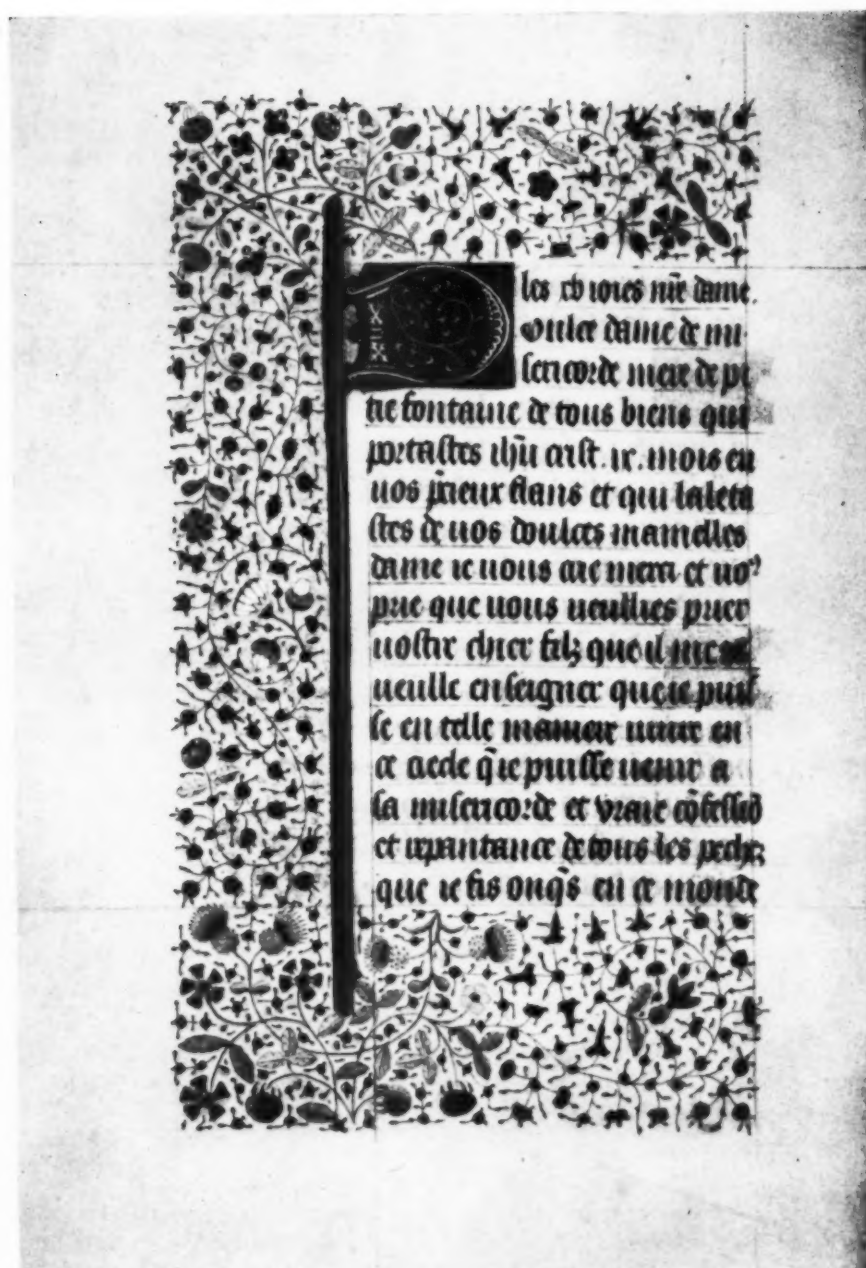 les xv ioies nr̄e dame.
Doulce dame de mi
sericorde mere de pi
tie fontaine de tous biens qui
portastes ih̄u crist. ix. mois en
uos p̄cieux flans et qui laleta
stes de uos doulces mamelles
dame ie uous crie merci et uo⁹
prie que uous ueullies prier
uostre chier filz que il me
ueulle enseigner que ie puis
se en telle maniere uiure en
ce ciecle q̄ ie puisse uenir a
sa misericorde et vraie cōfessiō
et repantance de tous les pechez
que ie fis onq̄s en ce monde